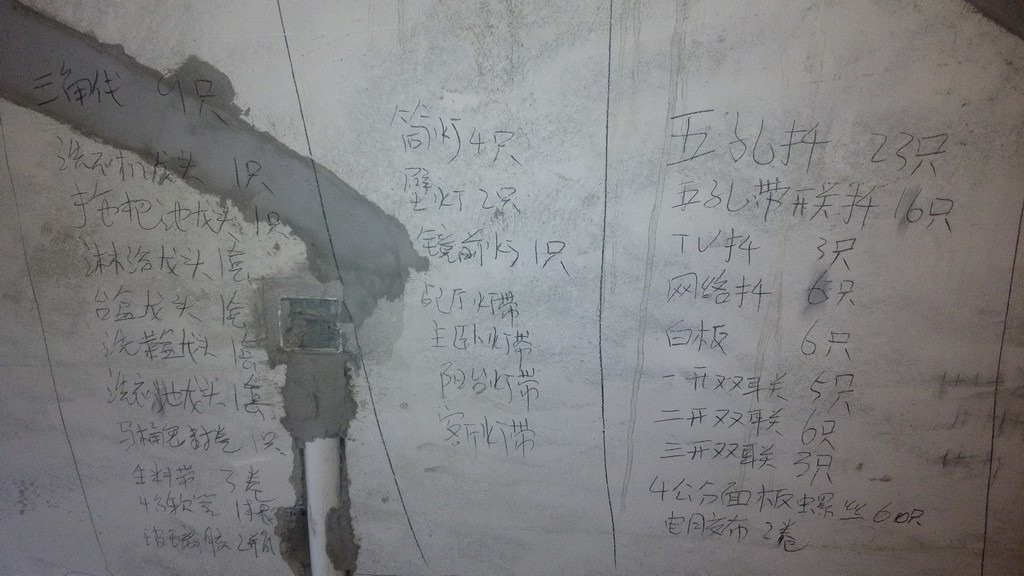 三角伐 9只
洗衣机龙头 1只
拖把池龙头 1只
淋浴龙头 1套
台盆龙头 1套
洗菜盆龙头 1套
洗衣池龙头 1套
马桶 1只
生料带 3卷
软管 1根
2瓶
筒灯 4只
壁灯 2只
镜前灯 1只
灯带
主卧灯带
阳台灯带
客厅灯带
五孔抖 23只
五孔带开关抖 16只
TV抖 3只
网络抖 6只
白板 6只
一开双联 5只
二开双联 6只
三开双联 3只
4公分面板螺丝 60只
电用胶布 2卷